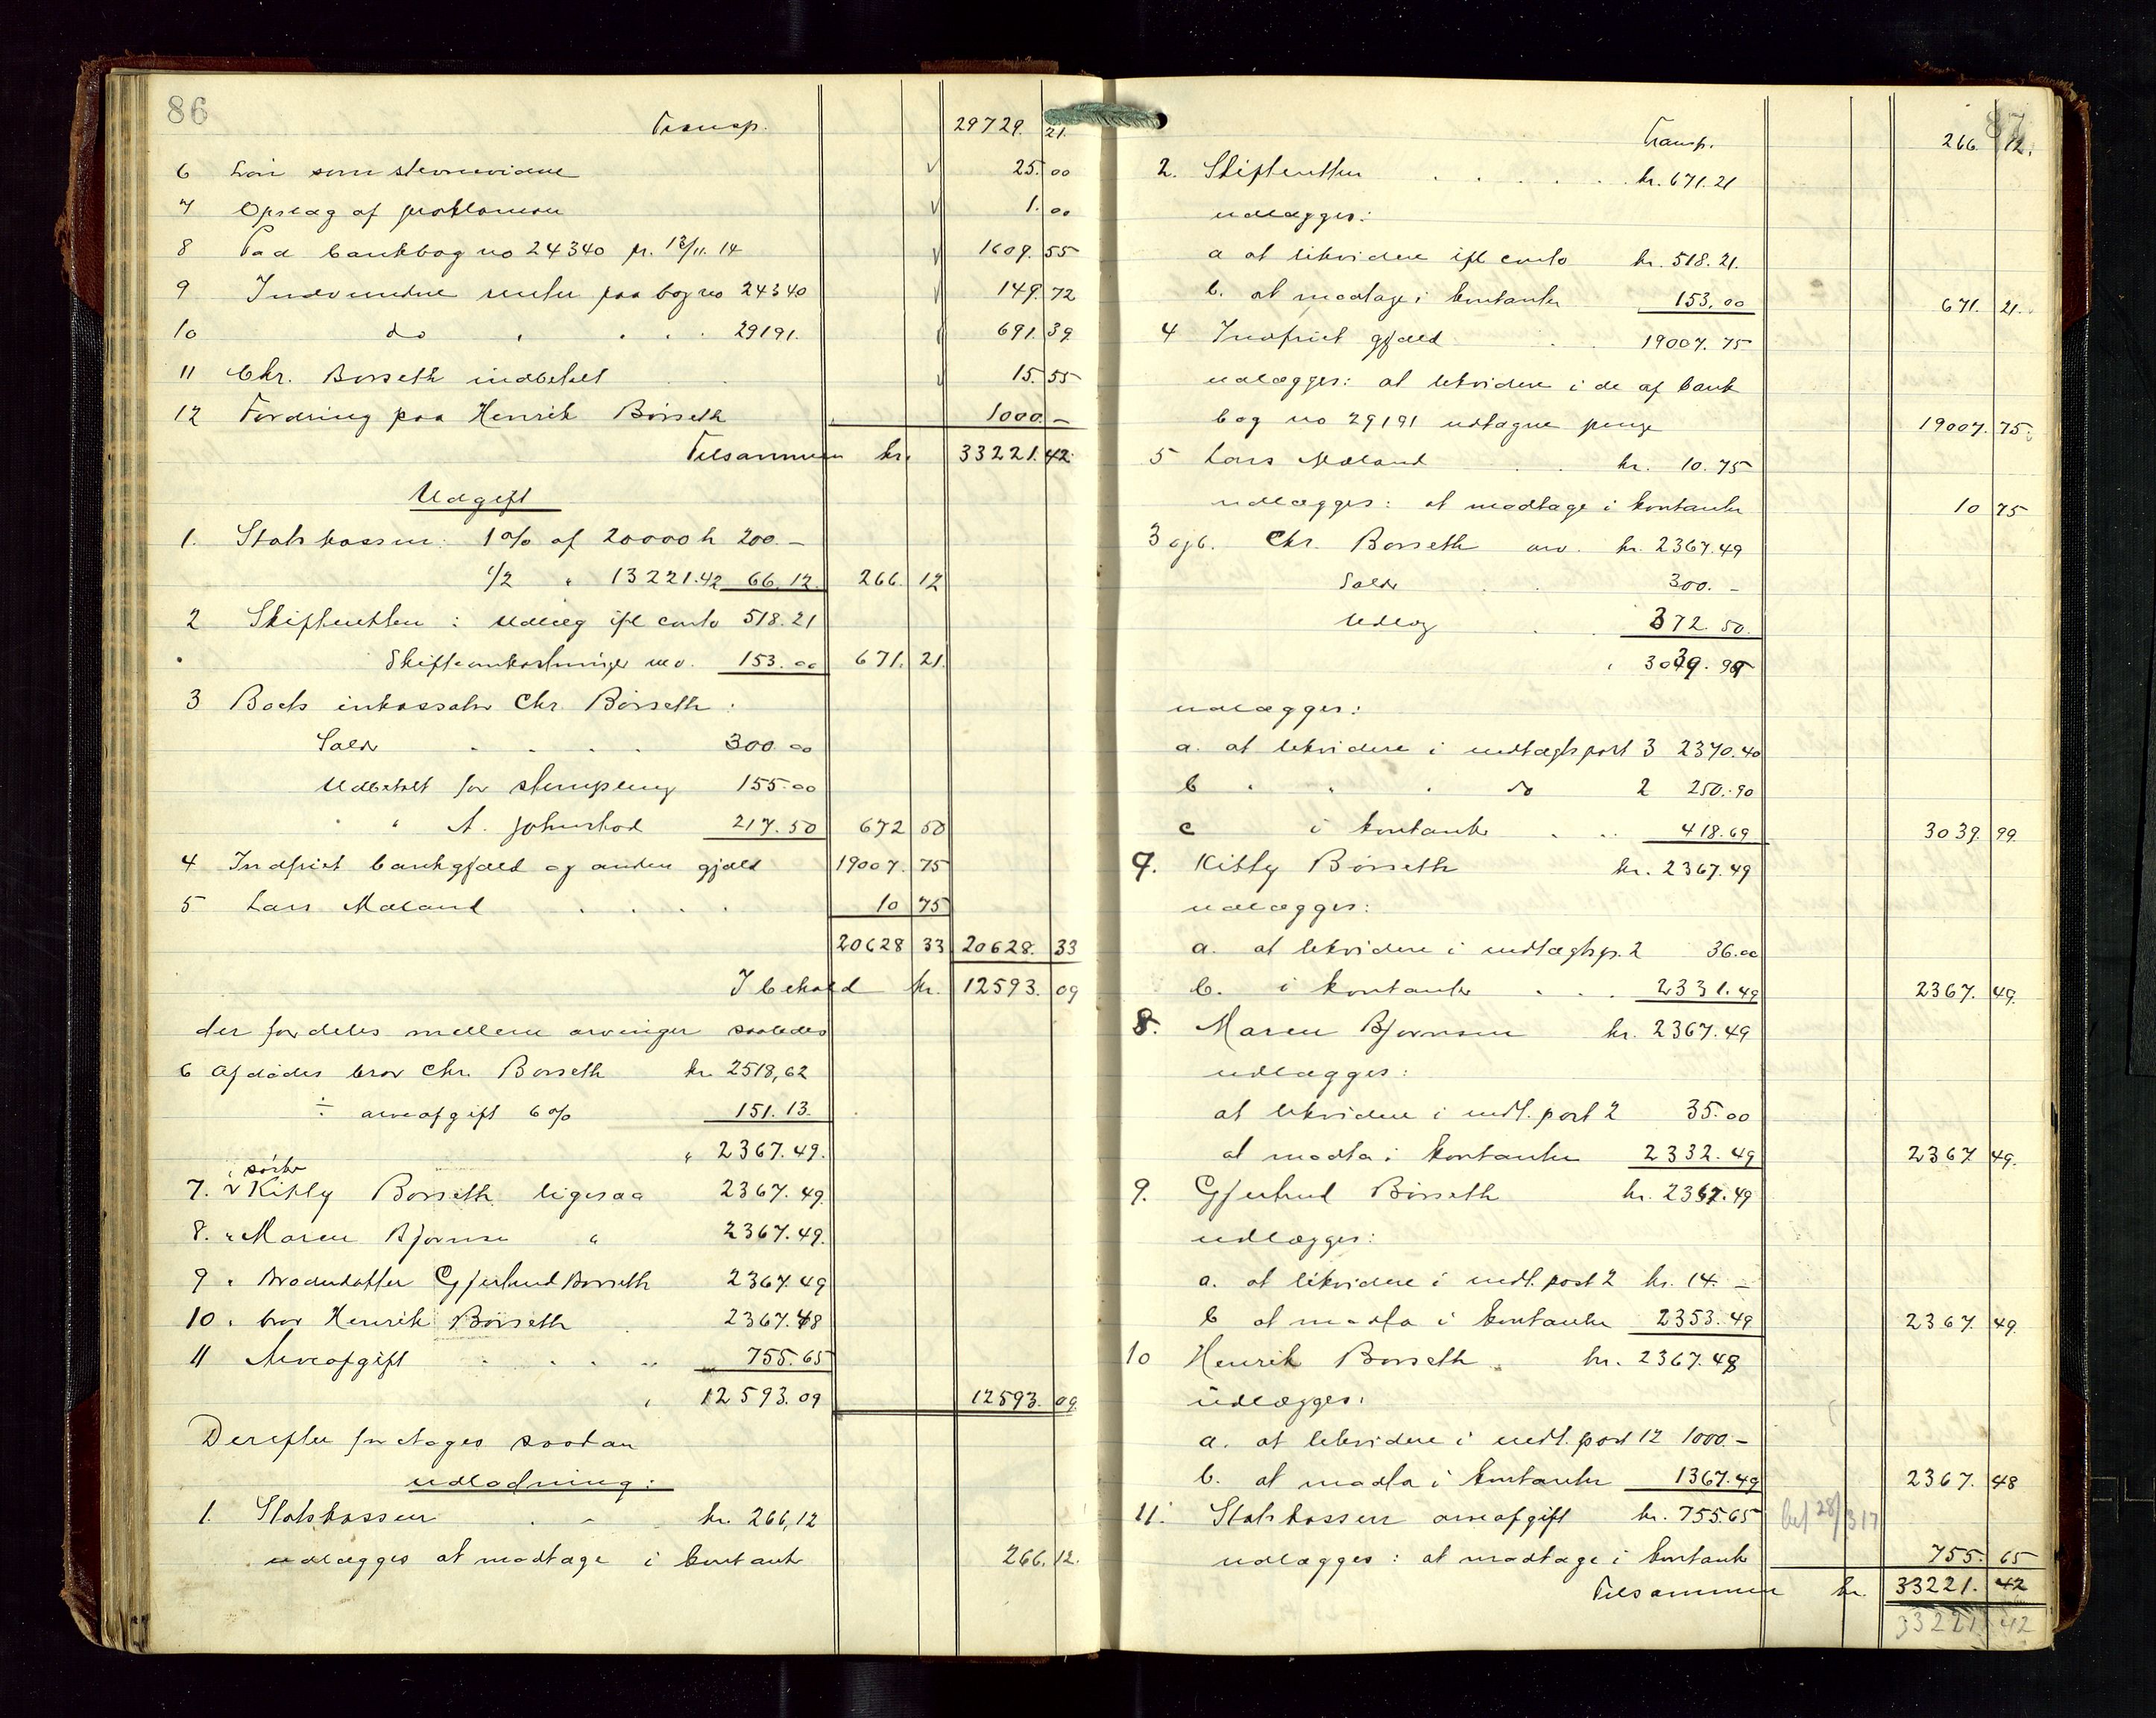 86
Transp. 29729. 21.
6 Løn som stevnevidne 25. 00
7 Opslag af proklama 1. 00
8 Paa bankbog no 24340 pr. 12/11. 14 1609. 55
9 Indvundne renter paa bog no 24340 149. 72
10 do 29191. 691. 39
11 Chr. Børseth indbetalt 15. 55
12 Fordring paa Henrik Børseth 1000. –
Tilsammen kr. 33221. 42
Udgift
1. Statskassen: 1% af 20000 kr 200. –
1/2 " 13221.42 66.12. 266. 12
2 Skifteretten: Udlæg ifl conto 518.21
Skifteomkostninger m.v. 153.00 671. 21.
3 Boets inkassator Chr. Børseth:
Salær 300.00
Udbetalt for stempling 155.00
" A. 217.50 672 50
4 Indfriet bankgjæld og anden gjæld 19007. 75
5 Lars Maland 10 75
20628 33 20628. 33
I behold kr. 12593. 09
der fordeles mellem arvinger saaledes
6 Afdødes bror Chr. Børseth kr. 2518,62
÷ arveafgift 6% 151.13.
" 2367.49.
søster
7. " Kitty Børseth ligesaa 2367.49.
8. " Maren Bjørnsen " 2367.49.
9 " Broderdatter Gjertrud Børseth 2367.49
10 " bror Henrik Børseth 2367.48
11 Arveafgift 755.65
12593.09 12593. 09.
Derefter foretages saadan
udlodning:
1. Statskassen kr. 266,12
udlægges at modtage i kontant 266. 12.
87
Transp. 266. 12.
2. Skifteretten kr. 671.21
udlægges:
a at likvidere ifl conto kr. 518.21.
b. at modtage i kontanter 153.00 671. 21.
4 Indfriet gjæld 19007.75
udlægges: at likvidere i de af bank
bog no 29191 udtagne penge 19007. 75.
5 Lars Maland kr. 10.75
udlægges: at modtage i kontanter 10 75
3 og 6. Chr. Børseth arv. kr. 2367.49
Salær 300. –
Udlæg 372.50.
" 3039.99
udlægges:
a. at likvidere i indtægtspost 3 2370.40
b " " " do 2 250.90
c i kontanter 418.69 3039. 99.
7. Kitty Børseth kr. 2367.49
udlægges:
a. at likvidere i indtægtsp. 2 36.00
b. i kontanter 2331.49 2367. 49.
8. Maren Bjørnsen kr. 2367.49
udlægges:
at likvidere i indt. post 2 35.00
at modta i kontanter 2332.49 2367 49.
9. Gjertrud Børseth kr. 2367.49
udlægges:
a. at likvidere i indt. post 2 kr. 14. –
b at modta i kontanter 2353.49 2367. 49.
10 Henrik Børseth kr. 2367.48
udlægges:
a. at likvidere i indt. post 12 1000. –
b. at modta i kontanter 1367.49 2367. 48
11. Statskassen arveafgift kr. 755.65 bet 28/3 17
udlægges: at modtage i kontant 755. 65
Tilsammen kr. 33221. 42
33221 42